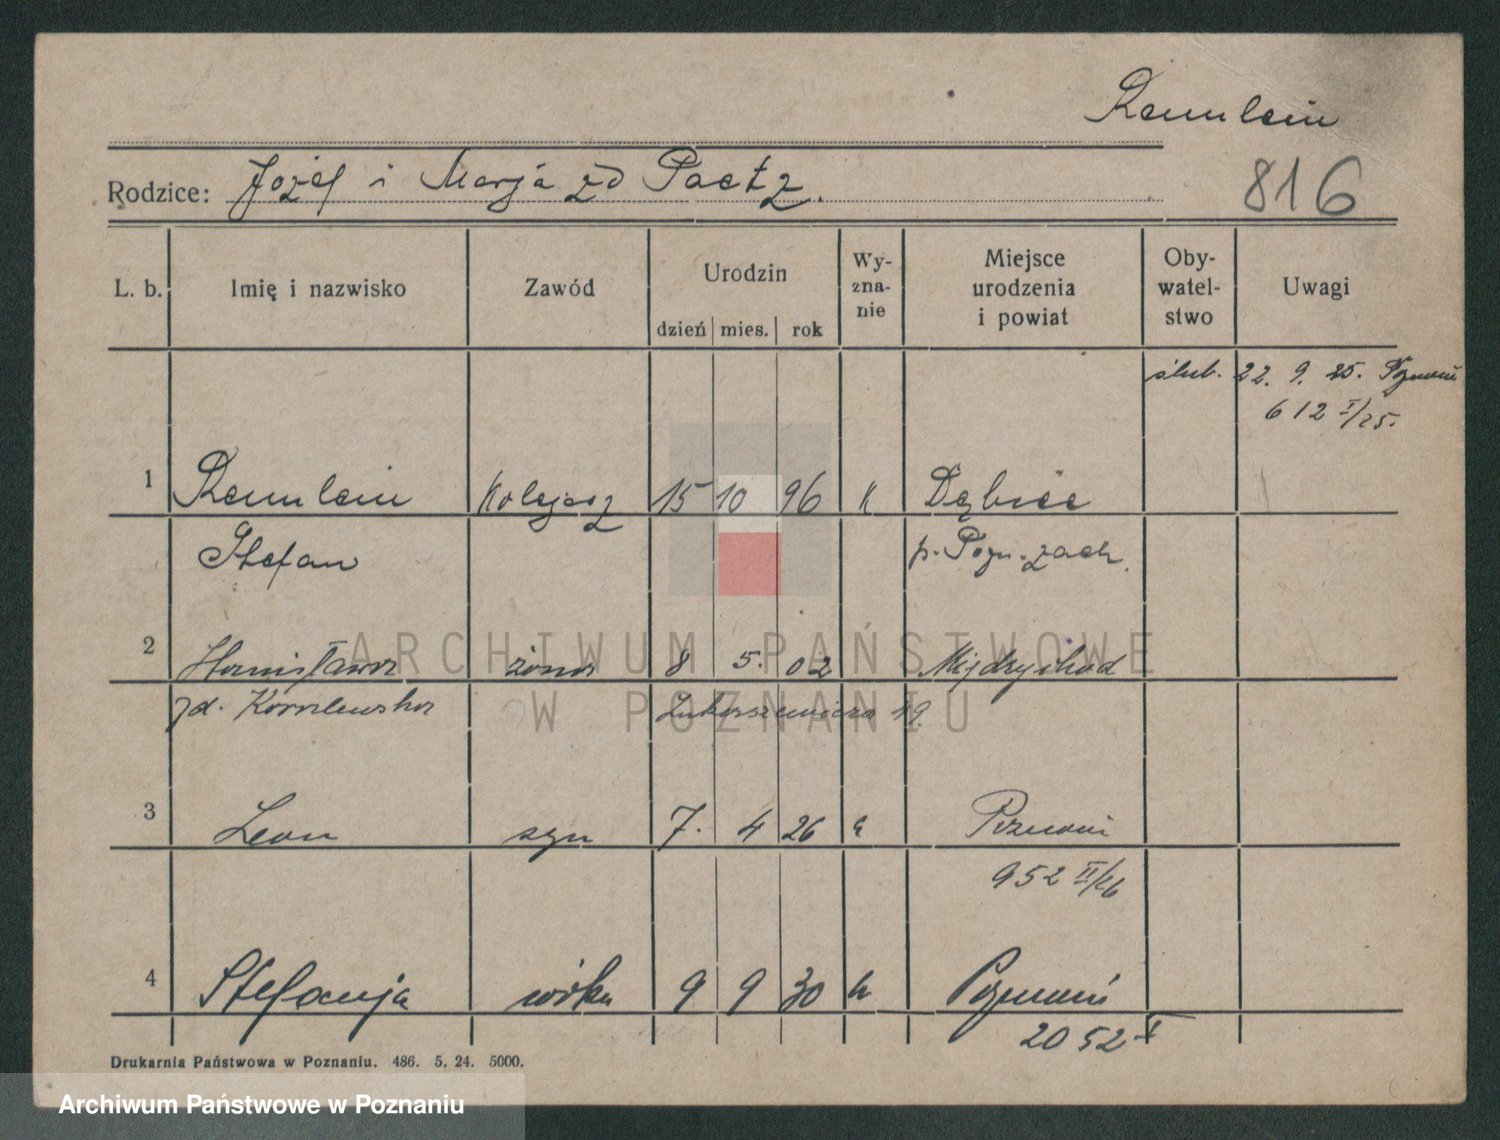 Remlein
Rodzice: Józef i Marja zd Paetz.
816
L. b. Imię i nazwisko Zawód Urodzin dzień mies. rok Wy-zna-nie Miejsce urodzenia i powiat Oby-watel-stwo Uwagi
ślub. 22. 9. 25. Poznań
612 I/25.
1 Remlein Kolejarz 15 10 96 k Dębiec
Stefan p. Pozn.-zach.
2 Stanisława żona 8 5. 02 Międzychód
zd. Korelewska Łukaszewicza 49
3 Leon syn 7. 4 26 k Poznań
952 II/26
4 Stefanja córka 9 9 30 k Poznań
2052 I
Drukarnia Państwowa w Poznaniu. 486. 5. 24. 5000.
ARCHIWUM PAŃSTWOWE
W POZNANIU
Archiwum Państwowe w Poznaniu